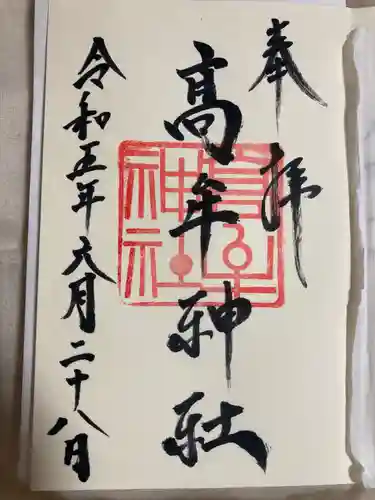 奉拝
高牟神社
高牟神社
令和五年六月二十八日